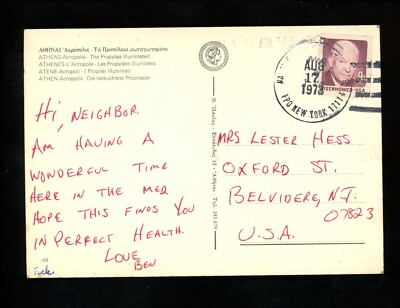 ΑΘΗΝΑΙ Ἀκρόπολις - Τά Προπύλαια φωταγωγημένα
ATHENS-Acropolis - The Propylea illuminated
ATHÈNES-L'Acropole - Les Propylées illuminées
ATENE-Acropoli - I Propilei illuminati
ATHEN-Acropolis - Die beleuchtete Propiläen
AUG
17
1973
FPO NEW YORK
EISENHOWER-USA
Hi, NEIGHBOR.
AM HAVING A
WONDERFUL TIME
HERE IN THE MED
HOPE THIS FINDS YOU
IN PERFECT HEALTH.
LOVE
BEN
64
MRS LESTER HESS
OXFORD ST.
BELVIDERE, N.J.
07823
U.S.A.